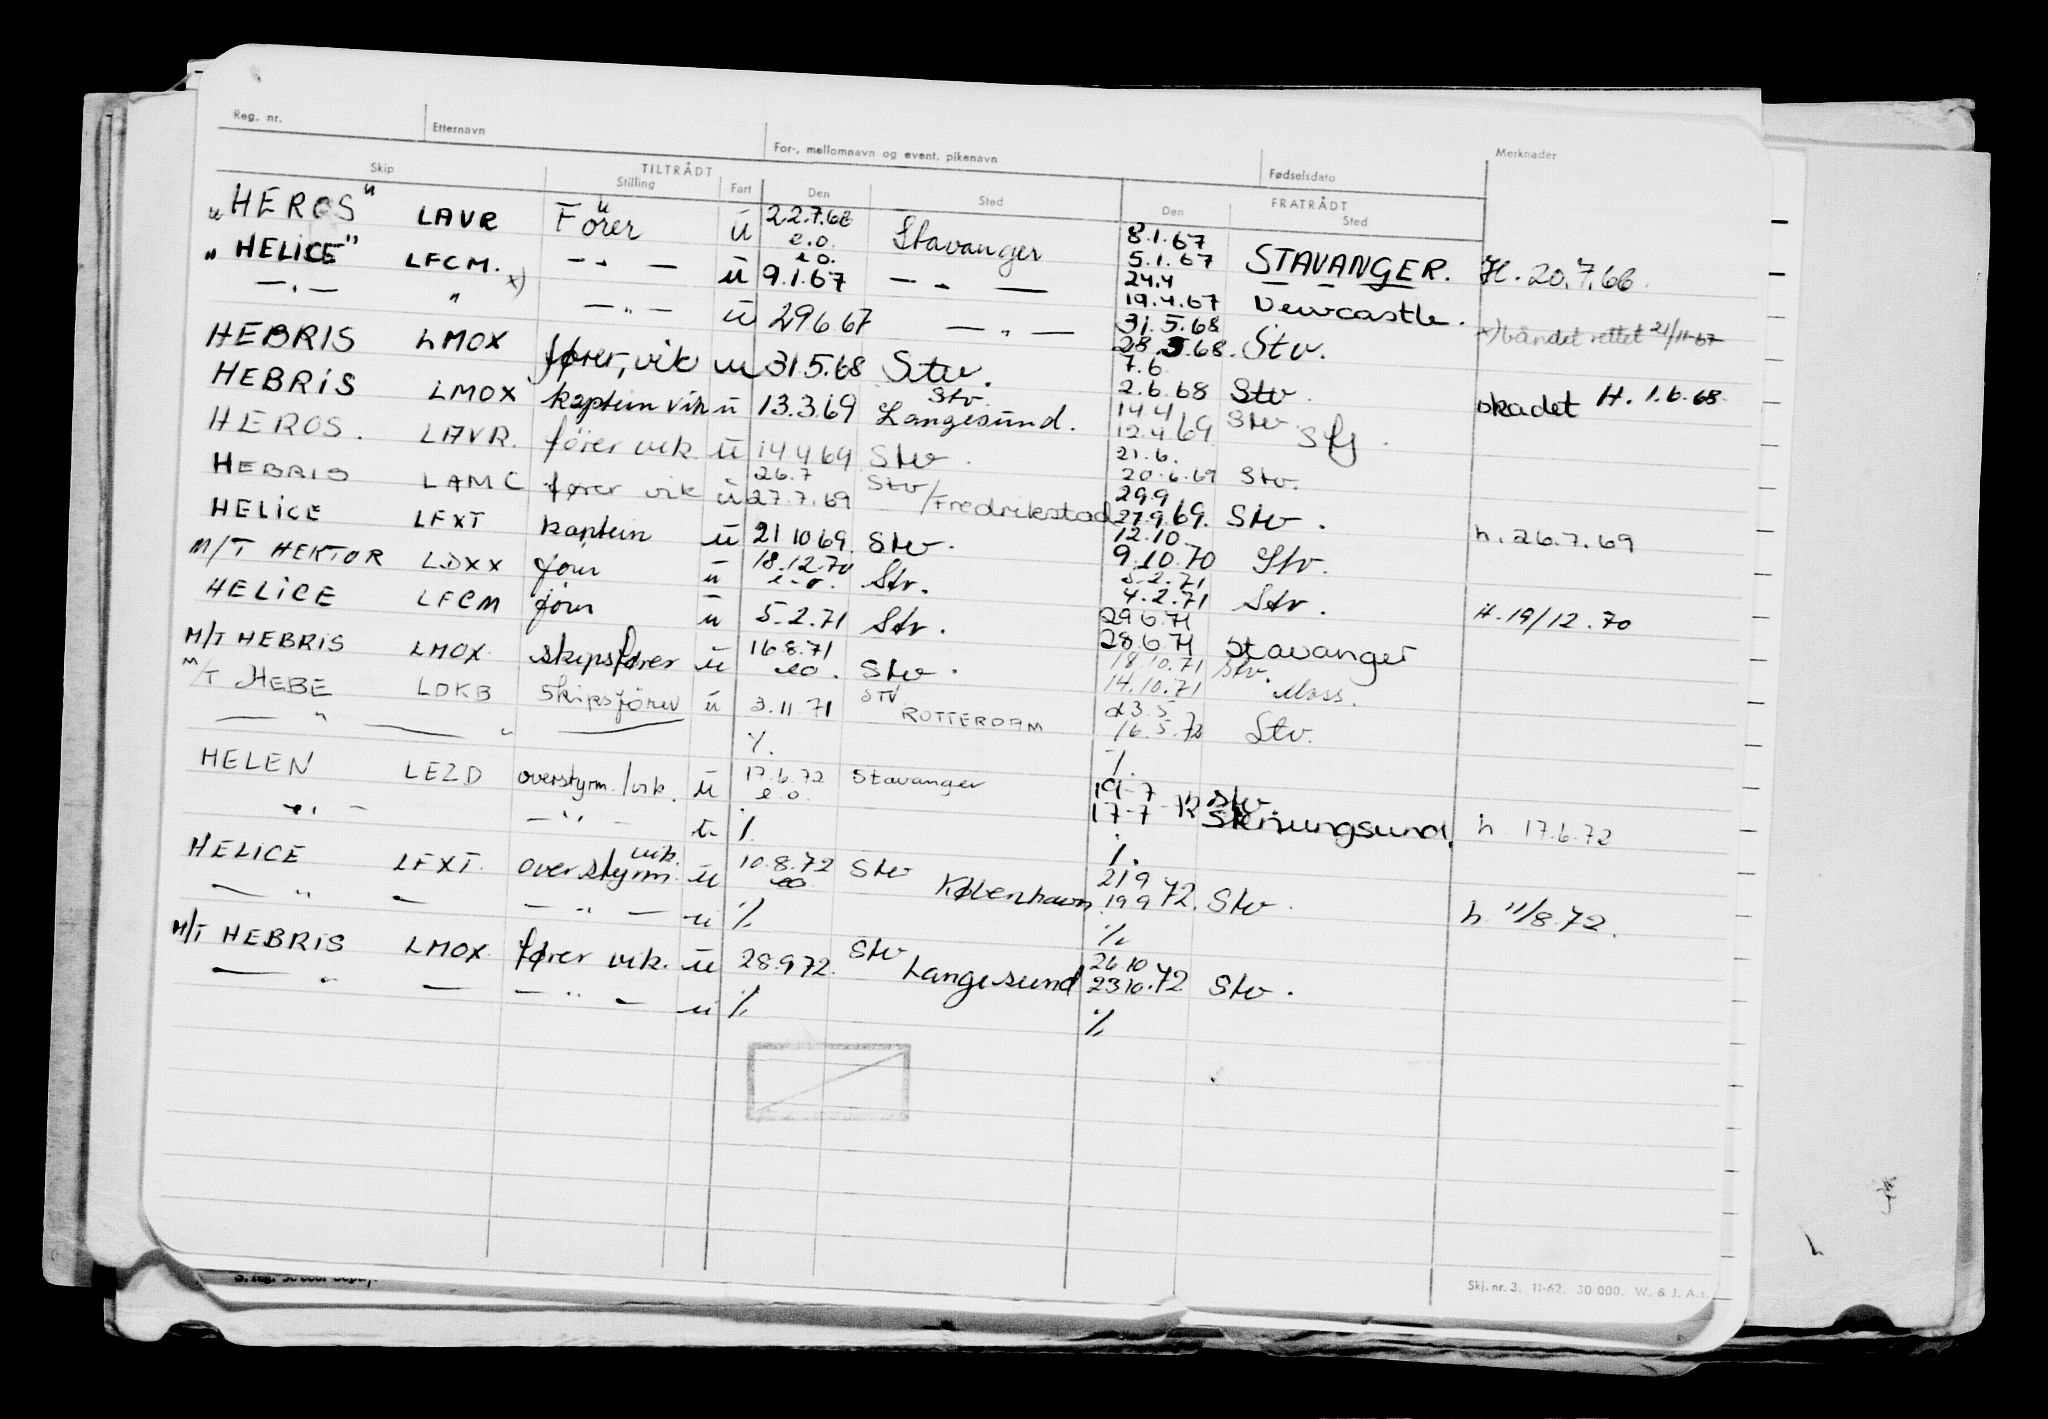 Reg. nr. Etternavn For-, mellomnavn og event. pikenavn Fødselsdato Merknader
Skip TILTRÅDT FRATRÅDT
Stilling Fart Den Sted Den Sted
"HEROS" LAVR Förer ü 22.7.66 e.o. Stavanger 8.1.67 5.1.67 STAVANGER. H. 20.7.66.
"HELICE" LFCM. x) — " — ü e.o. 9.1.67 — " — 24.4 19.4.67 Newcastle.
— " — " — " — ü 29.6.67 — " — 31.5.68 28.5.68. Stv. x) båndet rettet 21/11-67
HEBRIS LMOX fører, vik u 31.5.68 Stv. 7.6 2.6.68 Stv. skadet H. 1.6.68.
HEBRIS LMOX kaptein vik ü 13.3.69 Stv. Langesund. 14.4 12.4.69 Stv.
HEROS. LAVR. förer vik ü 14.4.69 Stv. 21.6. 20.6.69 Stv.
HEBRIS LAMC fører vik ü 26.7 27.7.69 Stv/Fredrikstad 29.9 27.9.69. Stv. h. 26.7.69
HELICE LFXT kaptein ü 21.10.69. Stv. 12.10. 9.10.70 Stv.
M/T HEKTOR LDXX fører ü 18.12.70 e.o. Stv. 5.2.71 4.2.71 Stv. H. 19/12.70
HELICE LFCM fører ü 5.2.71 Stv. 29.6.71 28.6.71 Stavanger
M/T HEBRIS LMOX skipsfører ü 16.8.71 eo. Stv. 18.10.71 14.10.71 Stv. Moss.
M/T HEBE LDKB Skipsförer ü 3.11.71 STV ROTTERDAM 23.5 16.5.72 Stv.
— " — " — % %
HELEN LEZD overstyrm./vik. ü 17.6.72 e.o. Stavanger 19-7 17-7-72 Stv. Stenungsund. h 17.6.72
— " — — " — t %. %.
HELICE LFXT. overstyrm. vik. ü 10.8.72 eo Stv København 21.9 19.9.72. Stv. h 11/8.72.
— " — — " — u % %
M/T HEBRIS LMOX fører vik. ü 28.9.72. Stv Langesund 26.10 23.10.72 Stv.
— " — — " — u % %
Skj. nr. 3. 11-62. 30 000. W. & J. A.s.